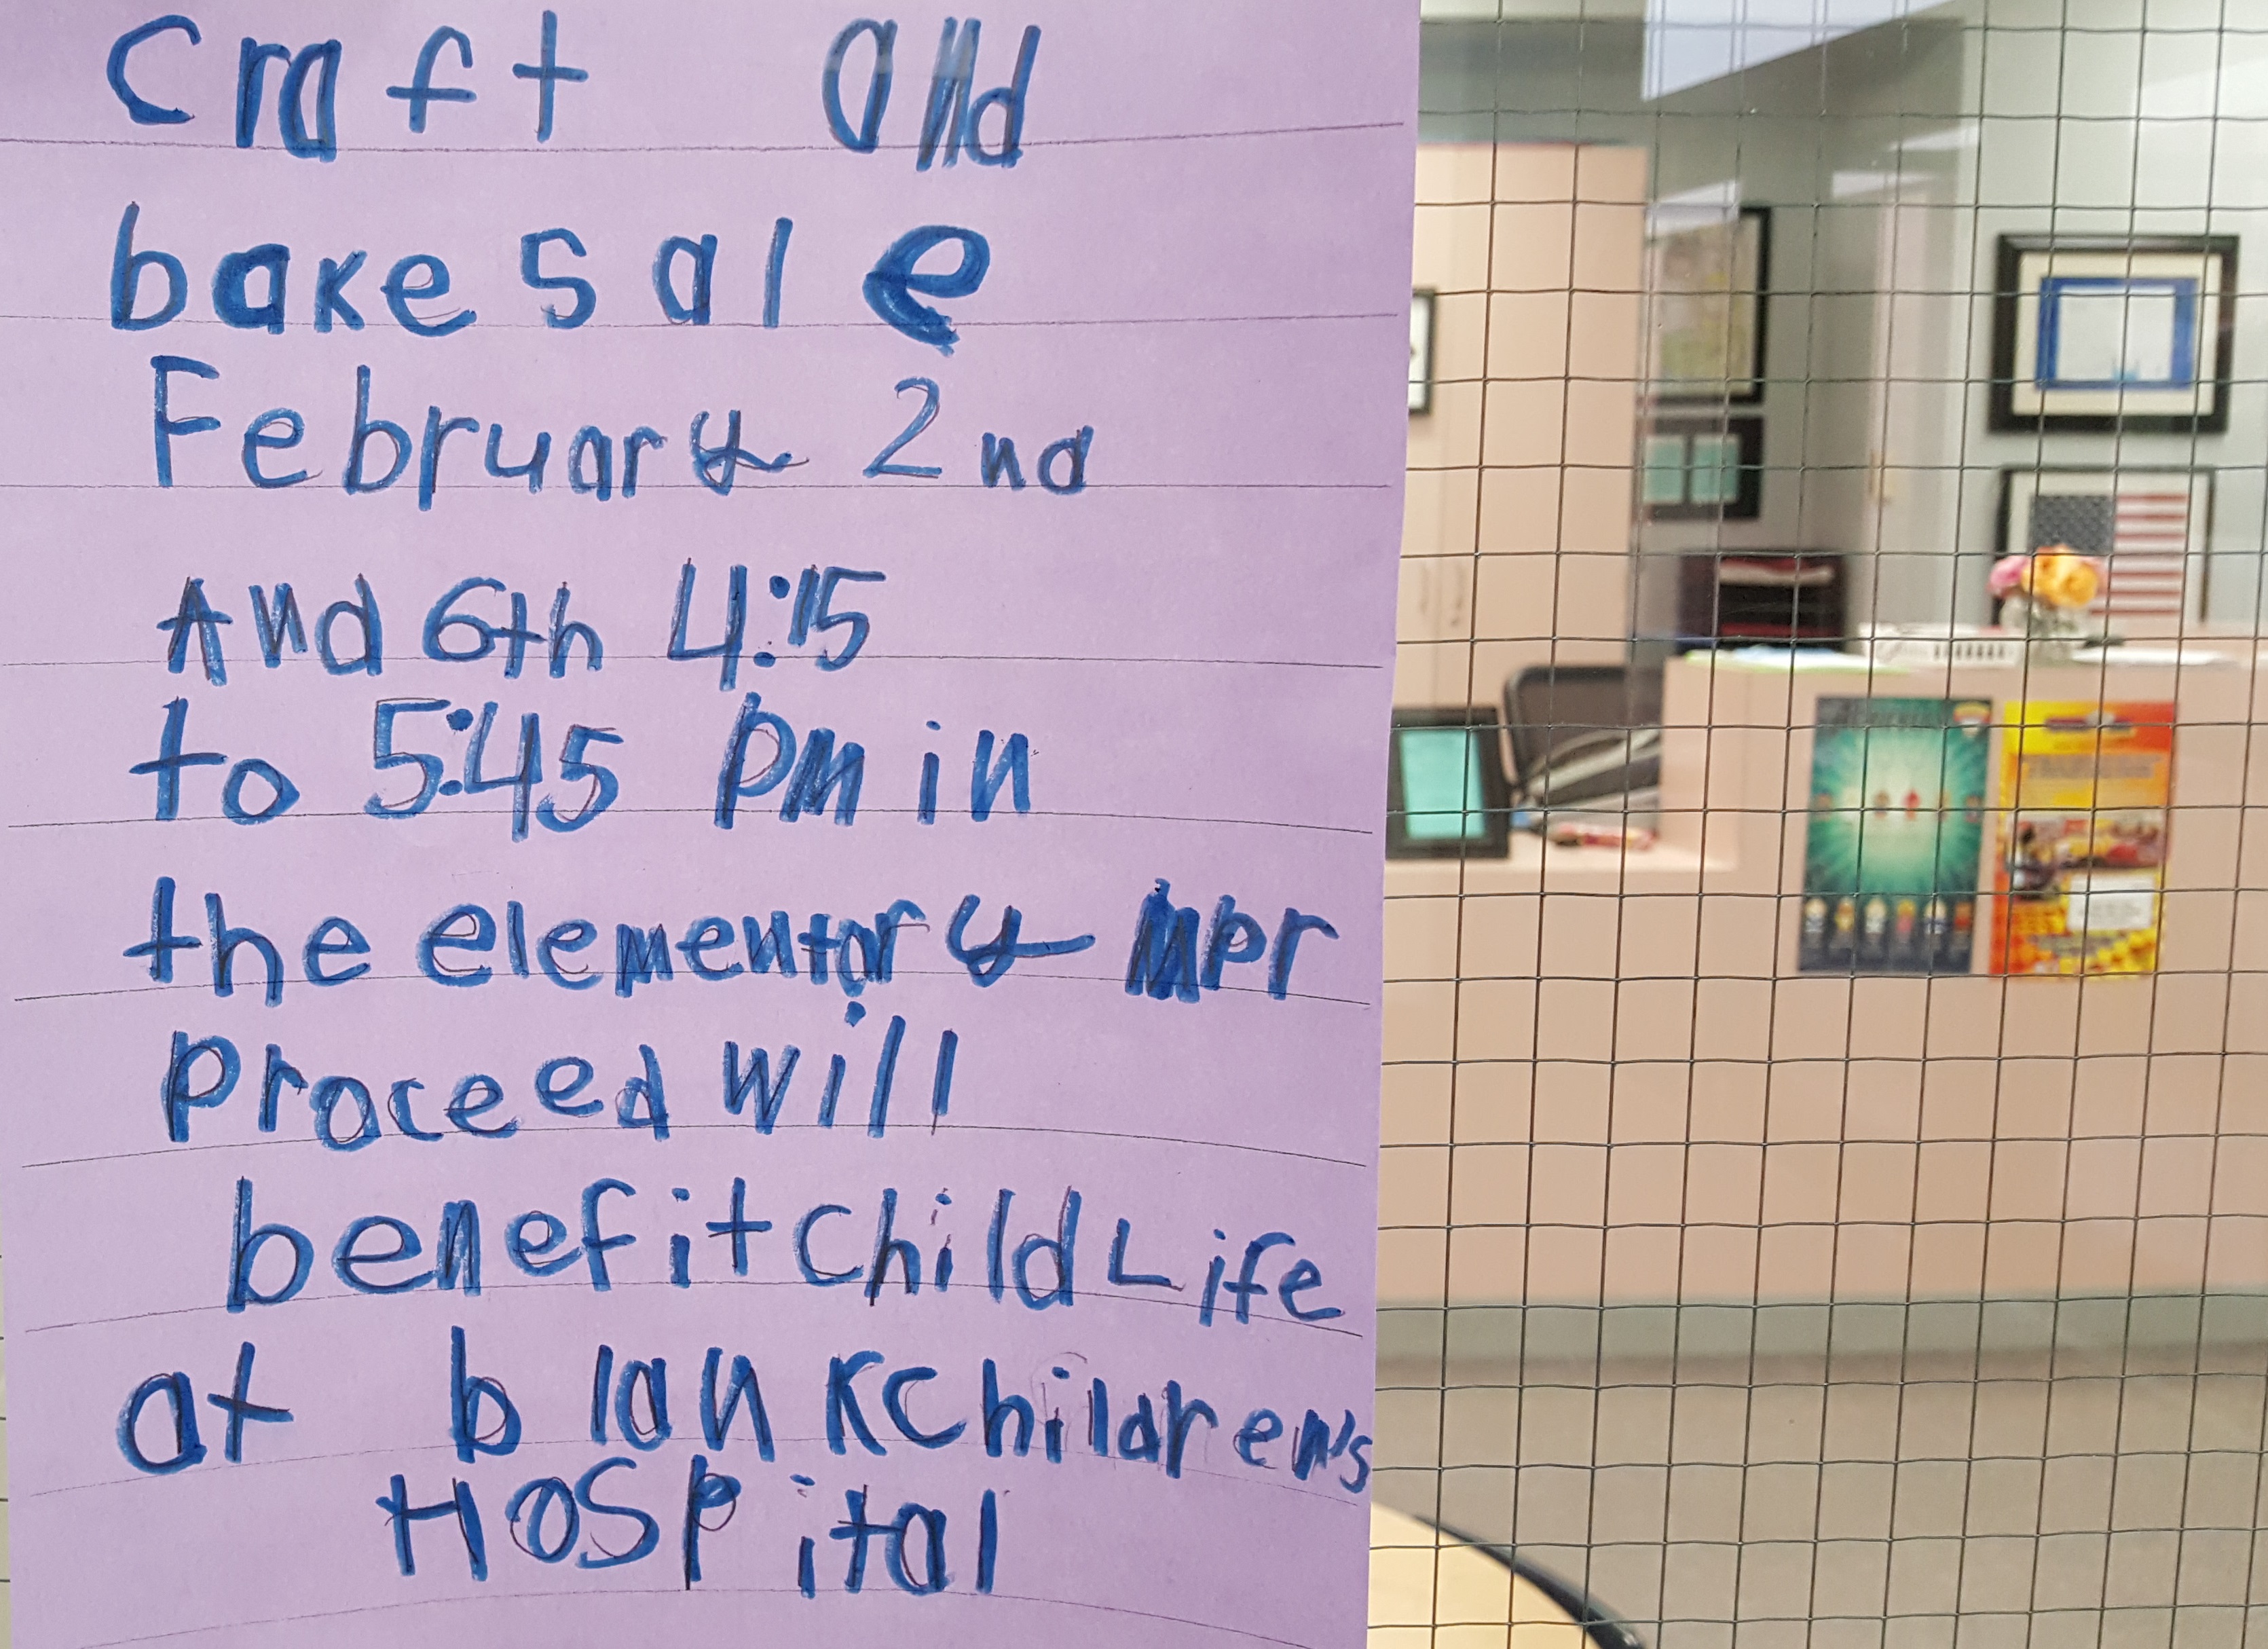 Craft and
bake sale
February 2nd
And 6th 4:15
to 5:45 pm in
the elementary mpr
proceed will
benefit child Life
at blank children's
HOSPital